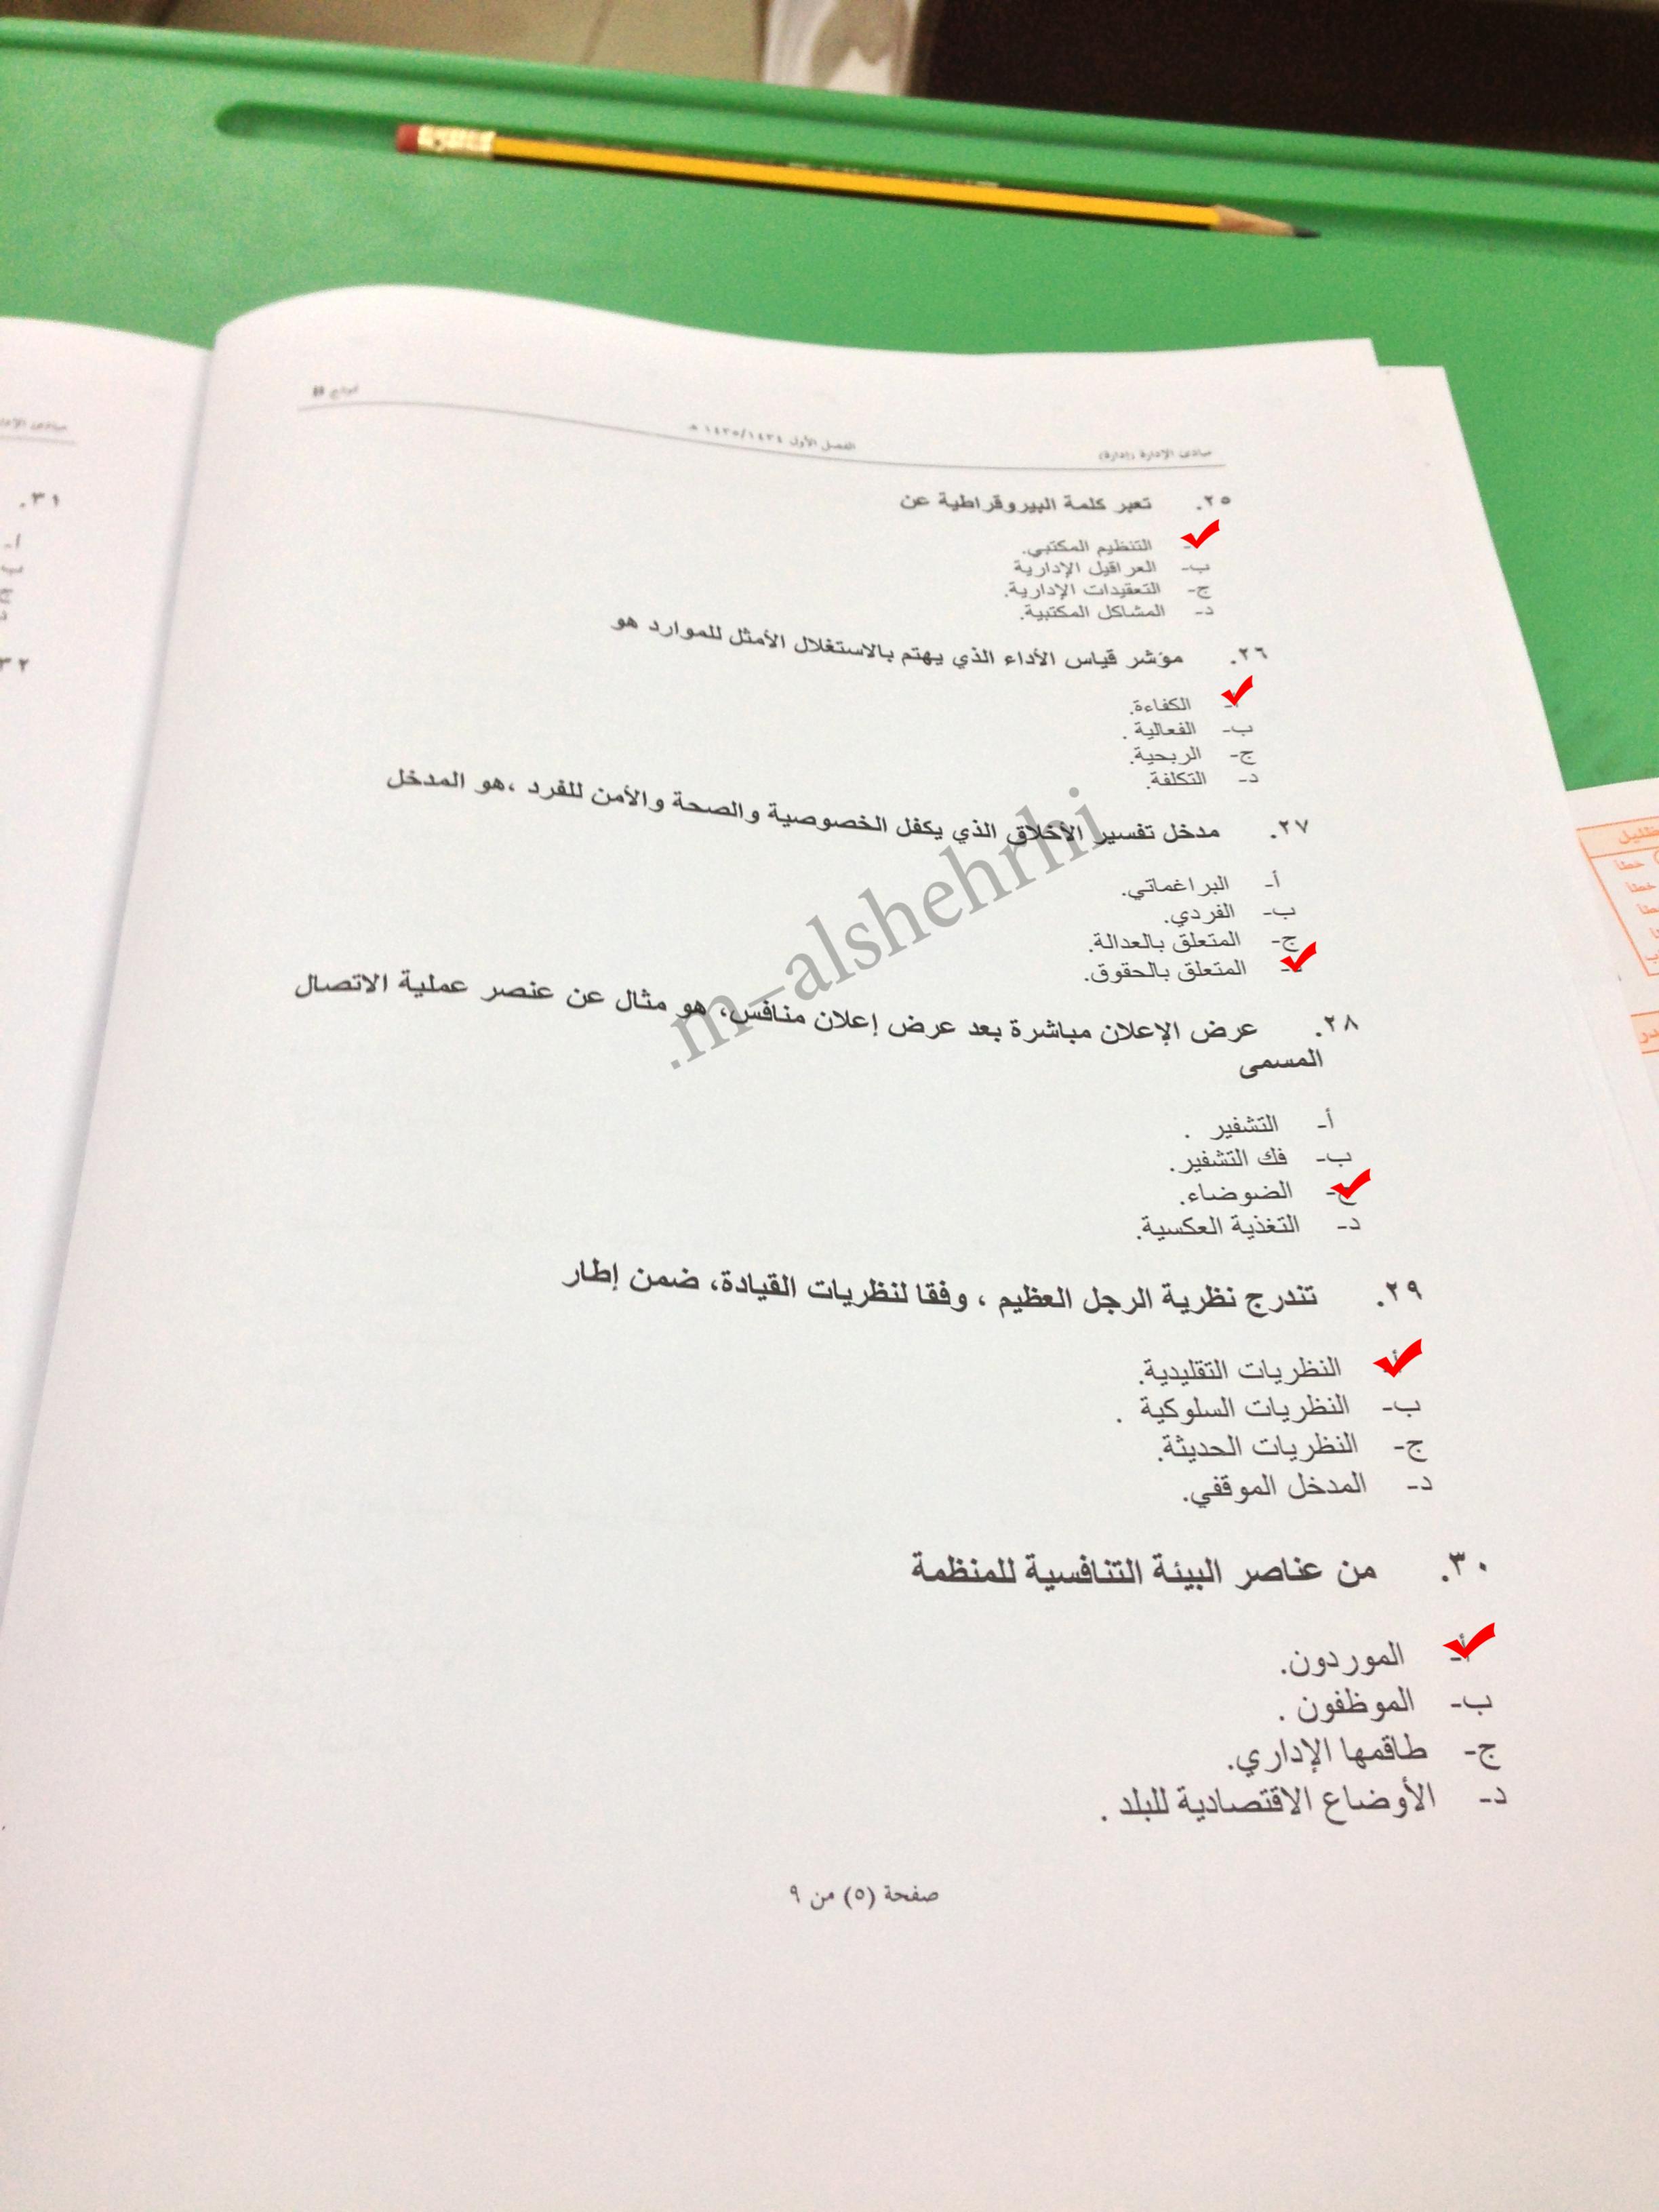 مبادئ الإدارة (إدارة)
الفصل الأول ١٤٣٥/١٤٣٤ هـ
نموذج B
٢٥. تعبر كلمة البيروقراطية عن
- التنظيم المكتبي.
ب- العراقيل الإدارية
ج- التعقيدات الإدارية.
د- المشاكل المكتبية.
٢٦. مؤشر قياس الأداء الذي يهتم بالاستغلال الأمثل للموارد هو
أ- الكفاءة.
ب- الفعالية .
ج- الربحية.
د- التكلفة.
٢٧. مدخل تفسير الأخلاق الذي يكفل الخصوصية والصحة والأمن للفرد ،هو المدخل
أ- البراغماتي.
ب- الفردي.
ج- المتعلق بالعدالة.
د- المتعلق بالحقوق.
٢٨. عرض الإعلان مباشرة بعد عرض إعلان منافس، هو مثال عن عنصر عملية الاتصال
المسمى
أ- التشفير .
ب- فك التشفير.
ج- الضوضاء.
د- التغذية العكسية.
٢٩. تندرج نظرية الرجل العظيم ، وفقا لنظريات القيادة، ضمن إطار
أ- النظريات التقليدية.
ب- النظريات السلوكية .
ج- النظريات الحديثة.
د- المدخل الموقفي.
٣٠. من عناصر البيئة التنافسية للمنظمة
أ- الموردون.
ب- الموظفون .
ج- طاقمها الإداري.
د- الأوضاع الاقتصادية للبلد .
صفحة (٥) من ٩
m-alshehrhi.
مبادئ الإدارة
٣١.
أ-
ب-
ج
د
٣٢
خطأ
خطأ